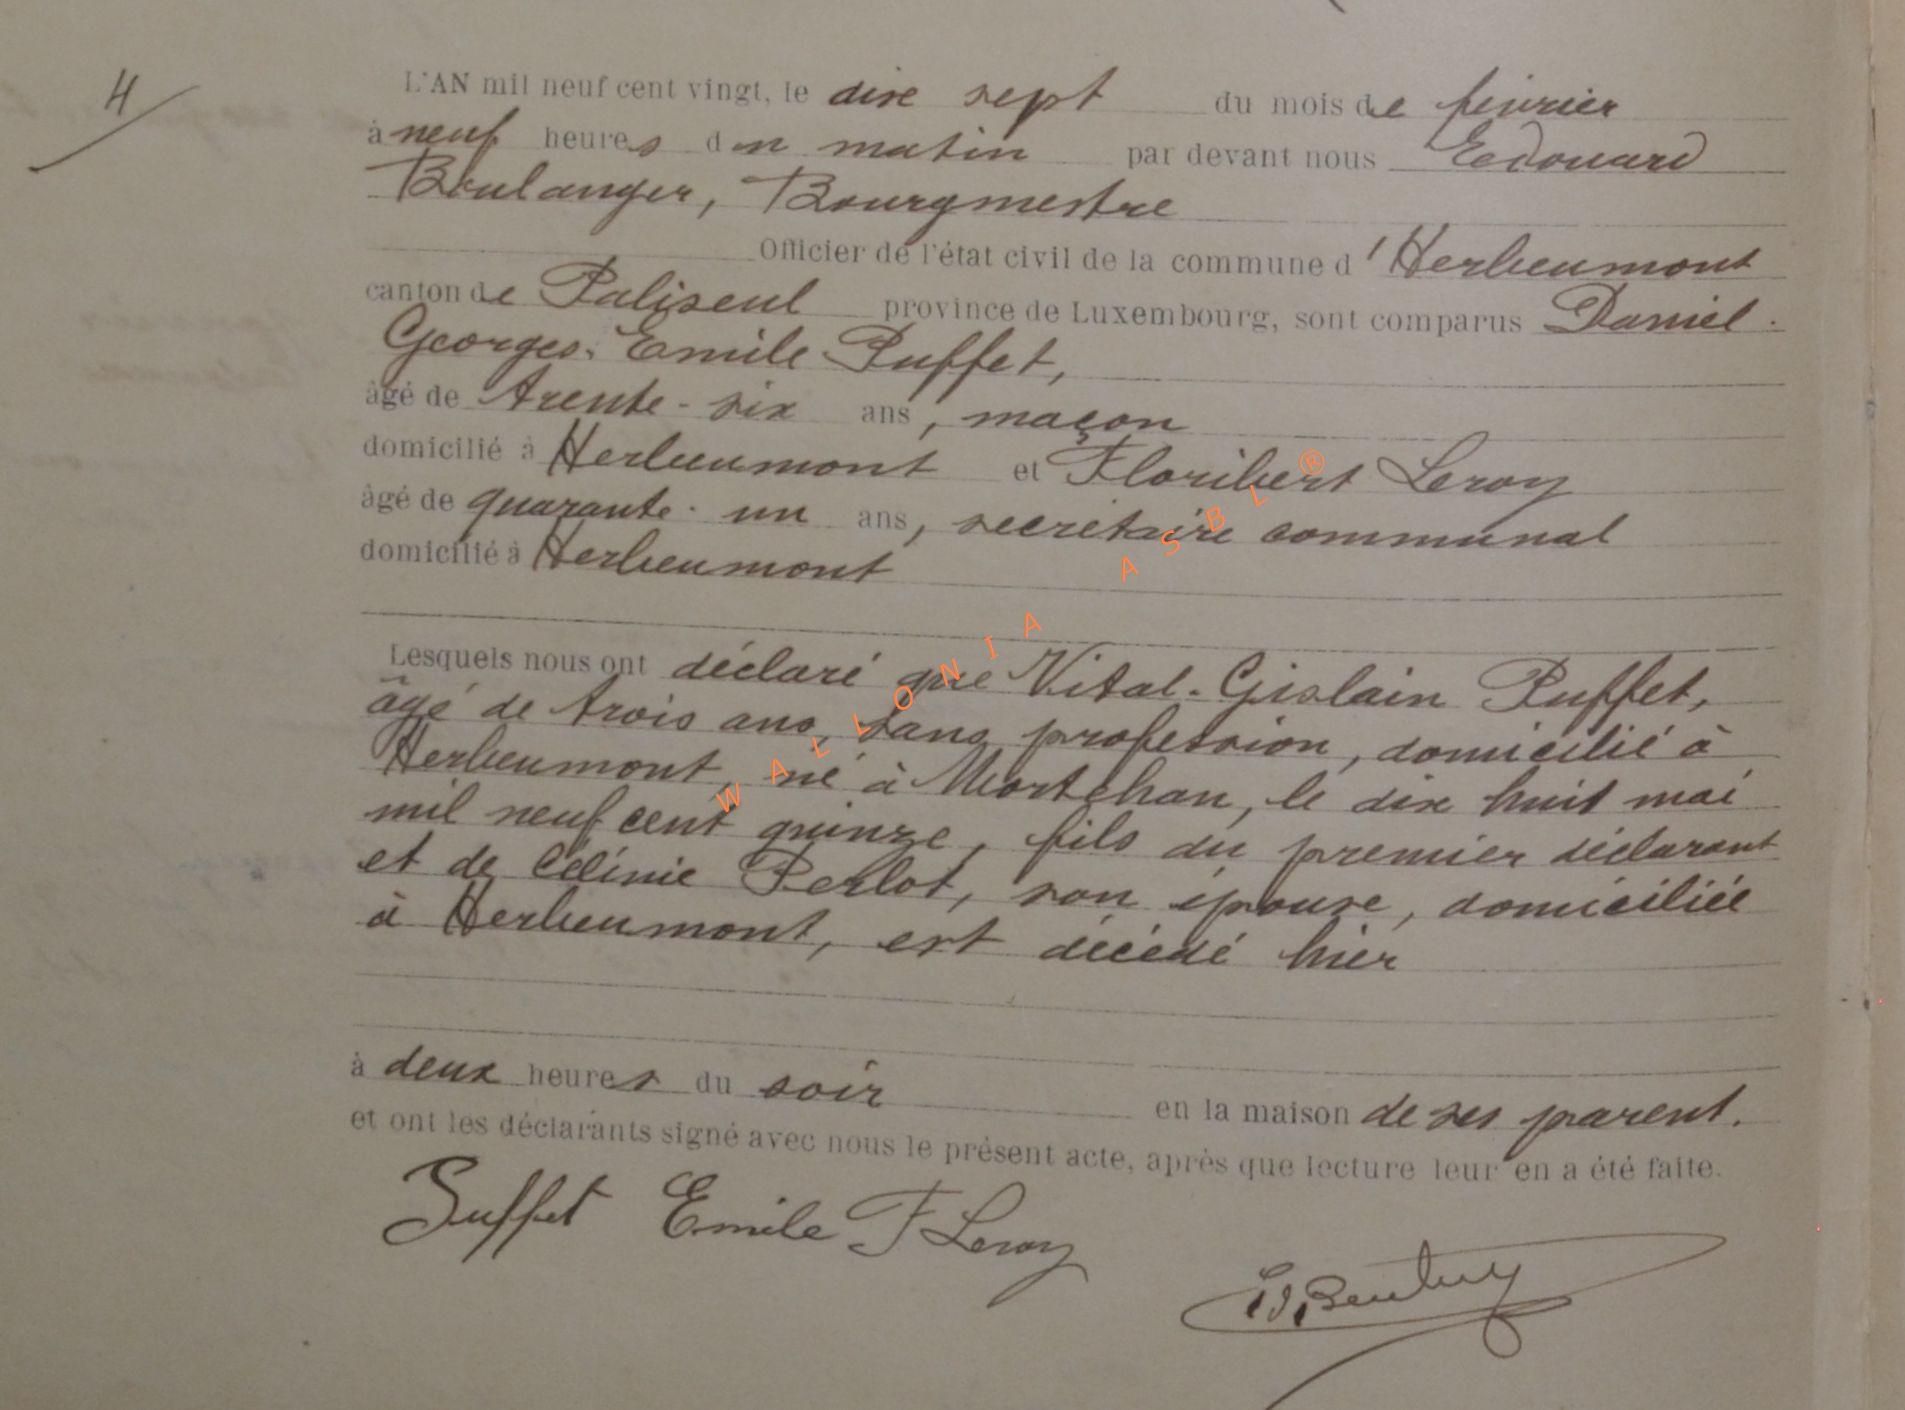 4
L'AN mil neuf cent vingt, le dix sept du mois de février
à neuf heures du matin par devant nous Edouard
Boulanger, Bourgmestre
Officier de l'état civil de la commune d'Herbeumont
canton de Paliseul province de Luxembourg, sont comparus Daniel-
Georges-Emile Puffet,
âgé de trente-six ans, maçon
domicilié à Herbeumont et Floribert Leroy
âgé de quarante-un ans, secrétaire communal
domicilié à Herbeumont
Lesquels nous ont déclaré que Vital-Gislain Puffet,
âgé de trois ans, sans profession, domicilié à
Herbeumont, né à Mortehan, le dix huit mai
mil neuf cent quinze, fils du premier déclarant
et de Célinie Perlot, son épouse, domiciliée
à Herbeumont, est décédé hier
à deux heures du soir en la maison de ses parent.
et ont les déclarants signé avec nous le présent acte, après que lecture leur en a été faite.
Puffet Emile F Leroy
WALLONIA ASBL ®